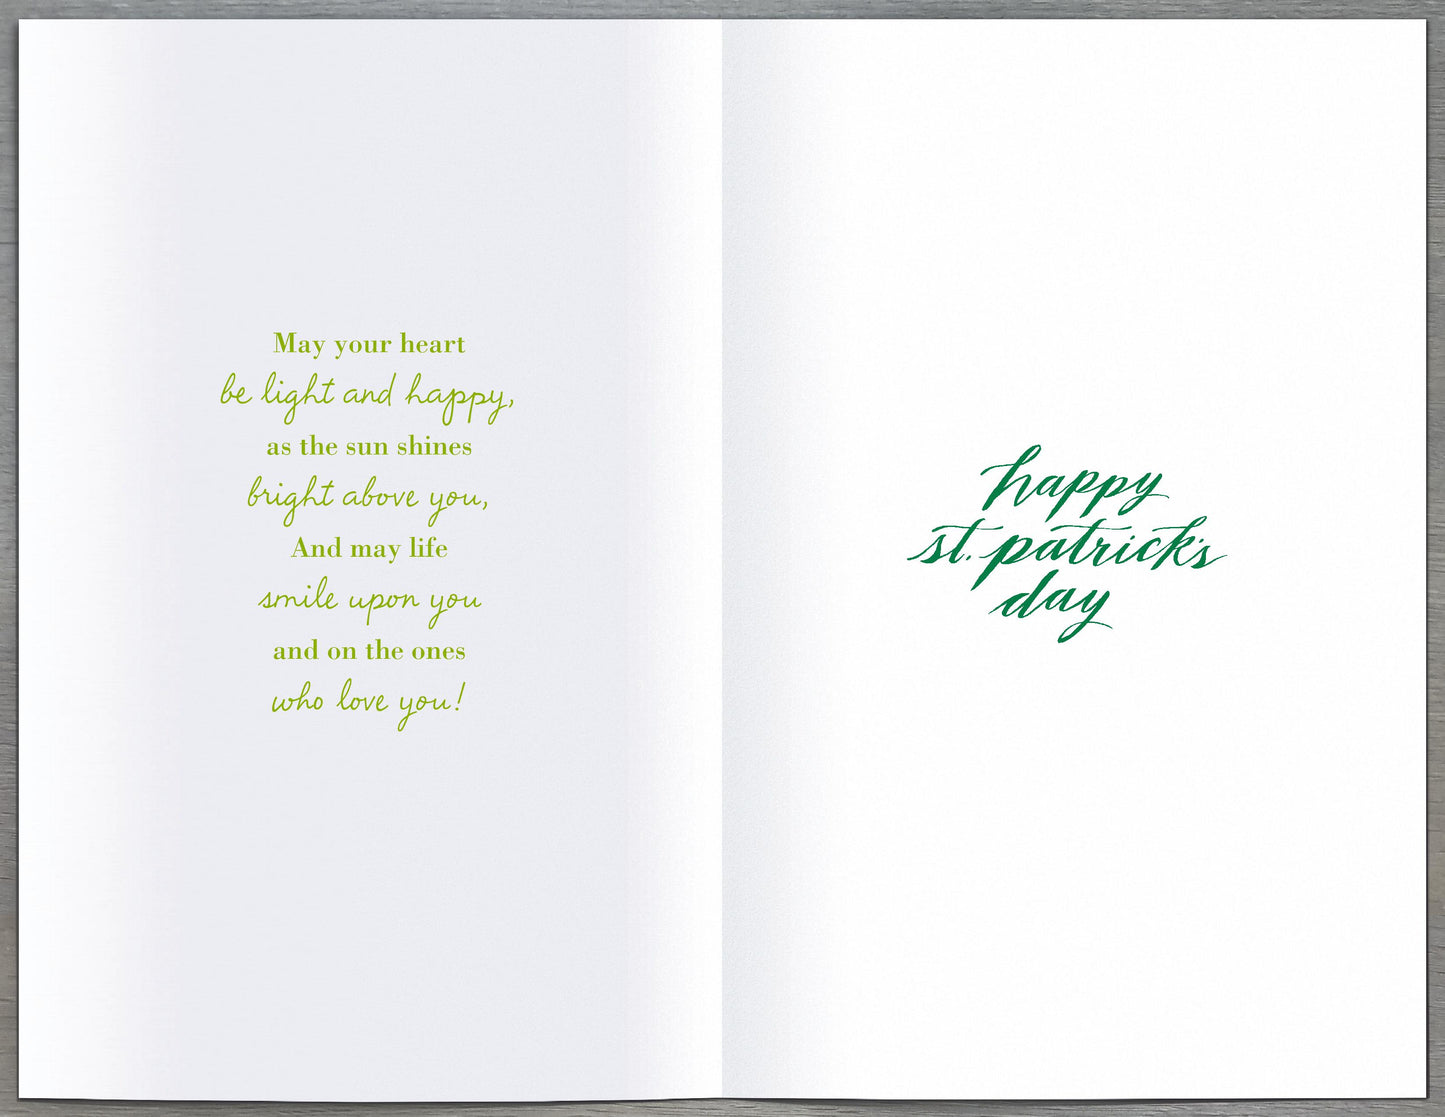 May your heart
be light and happy,
as the sun shines
bright above you,
And may life
smile upon you
and on the ones
who love you!
happy
st. patrick's
day